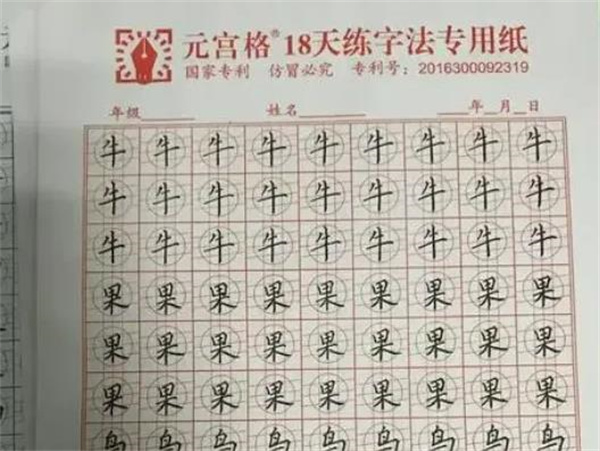 元宫格®18天练字法专用纸
国家专利 仿冒必究 专利号：2016300092319
年级 姓名 年 月 日
牛牛牛牛牛牛牛牛牛
牛牛牛牛牛牛牛牛牛
牛牛牛牛牛牛牛牛牛
果果果果果果果果果
果果果果果果果果果
果果果果果果果果果
鸟鸟鸟鸟鸟鸟鸟鸟鸟